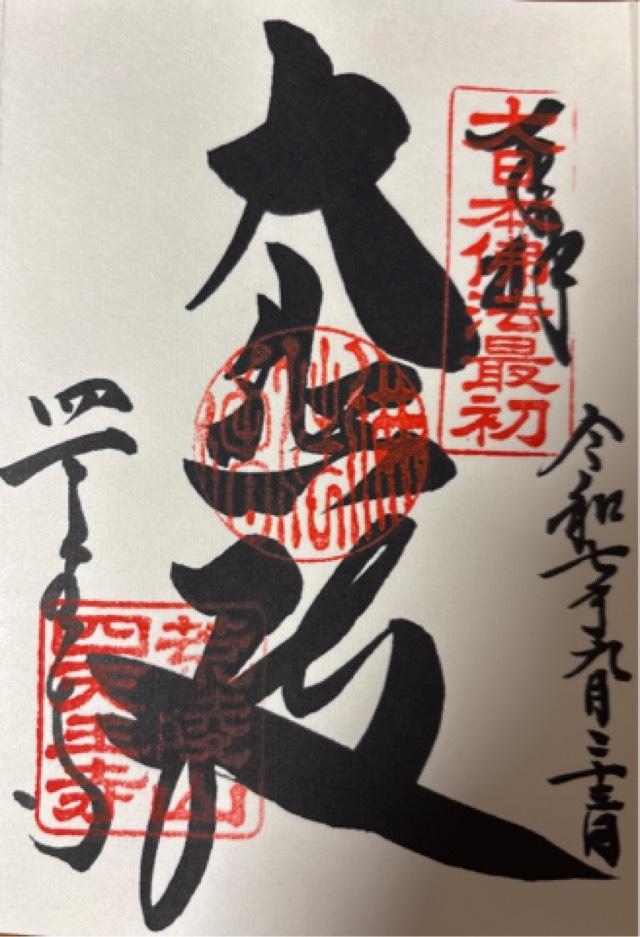 奉拝
大日本佛法最初
令和七年九月二十三日
大悲殿
四天王寺
荒陵山
四天王寺